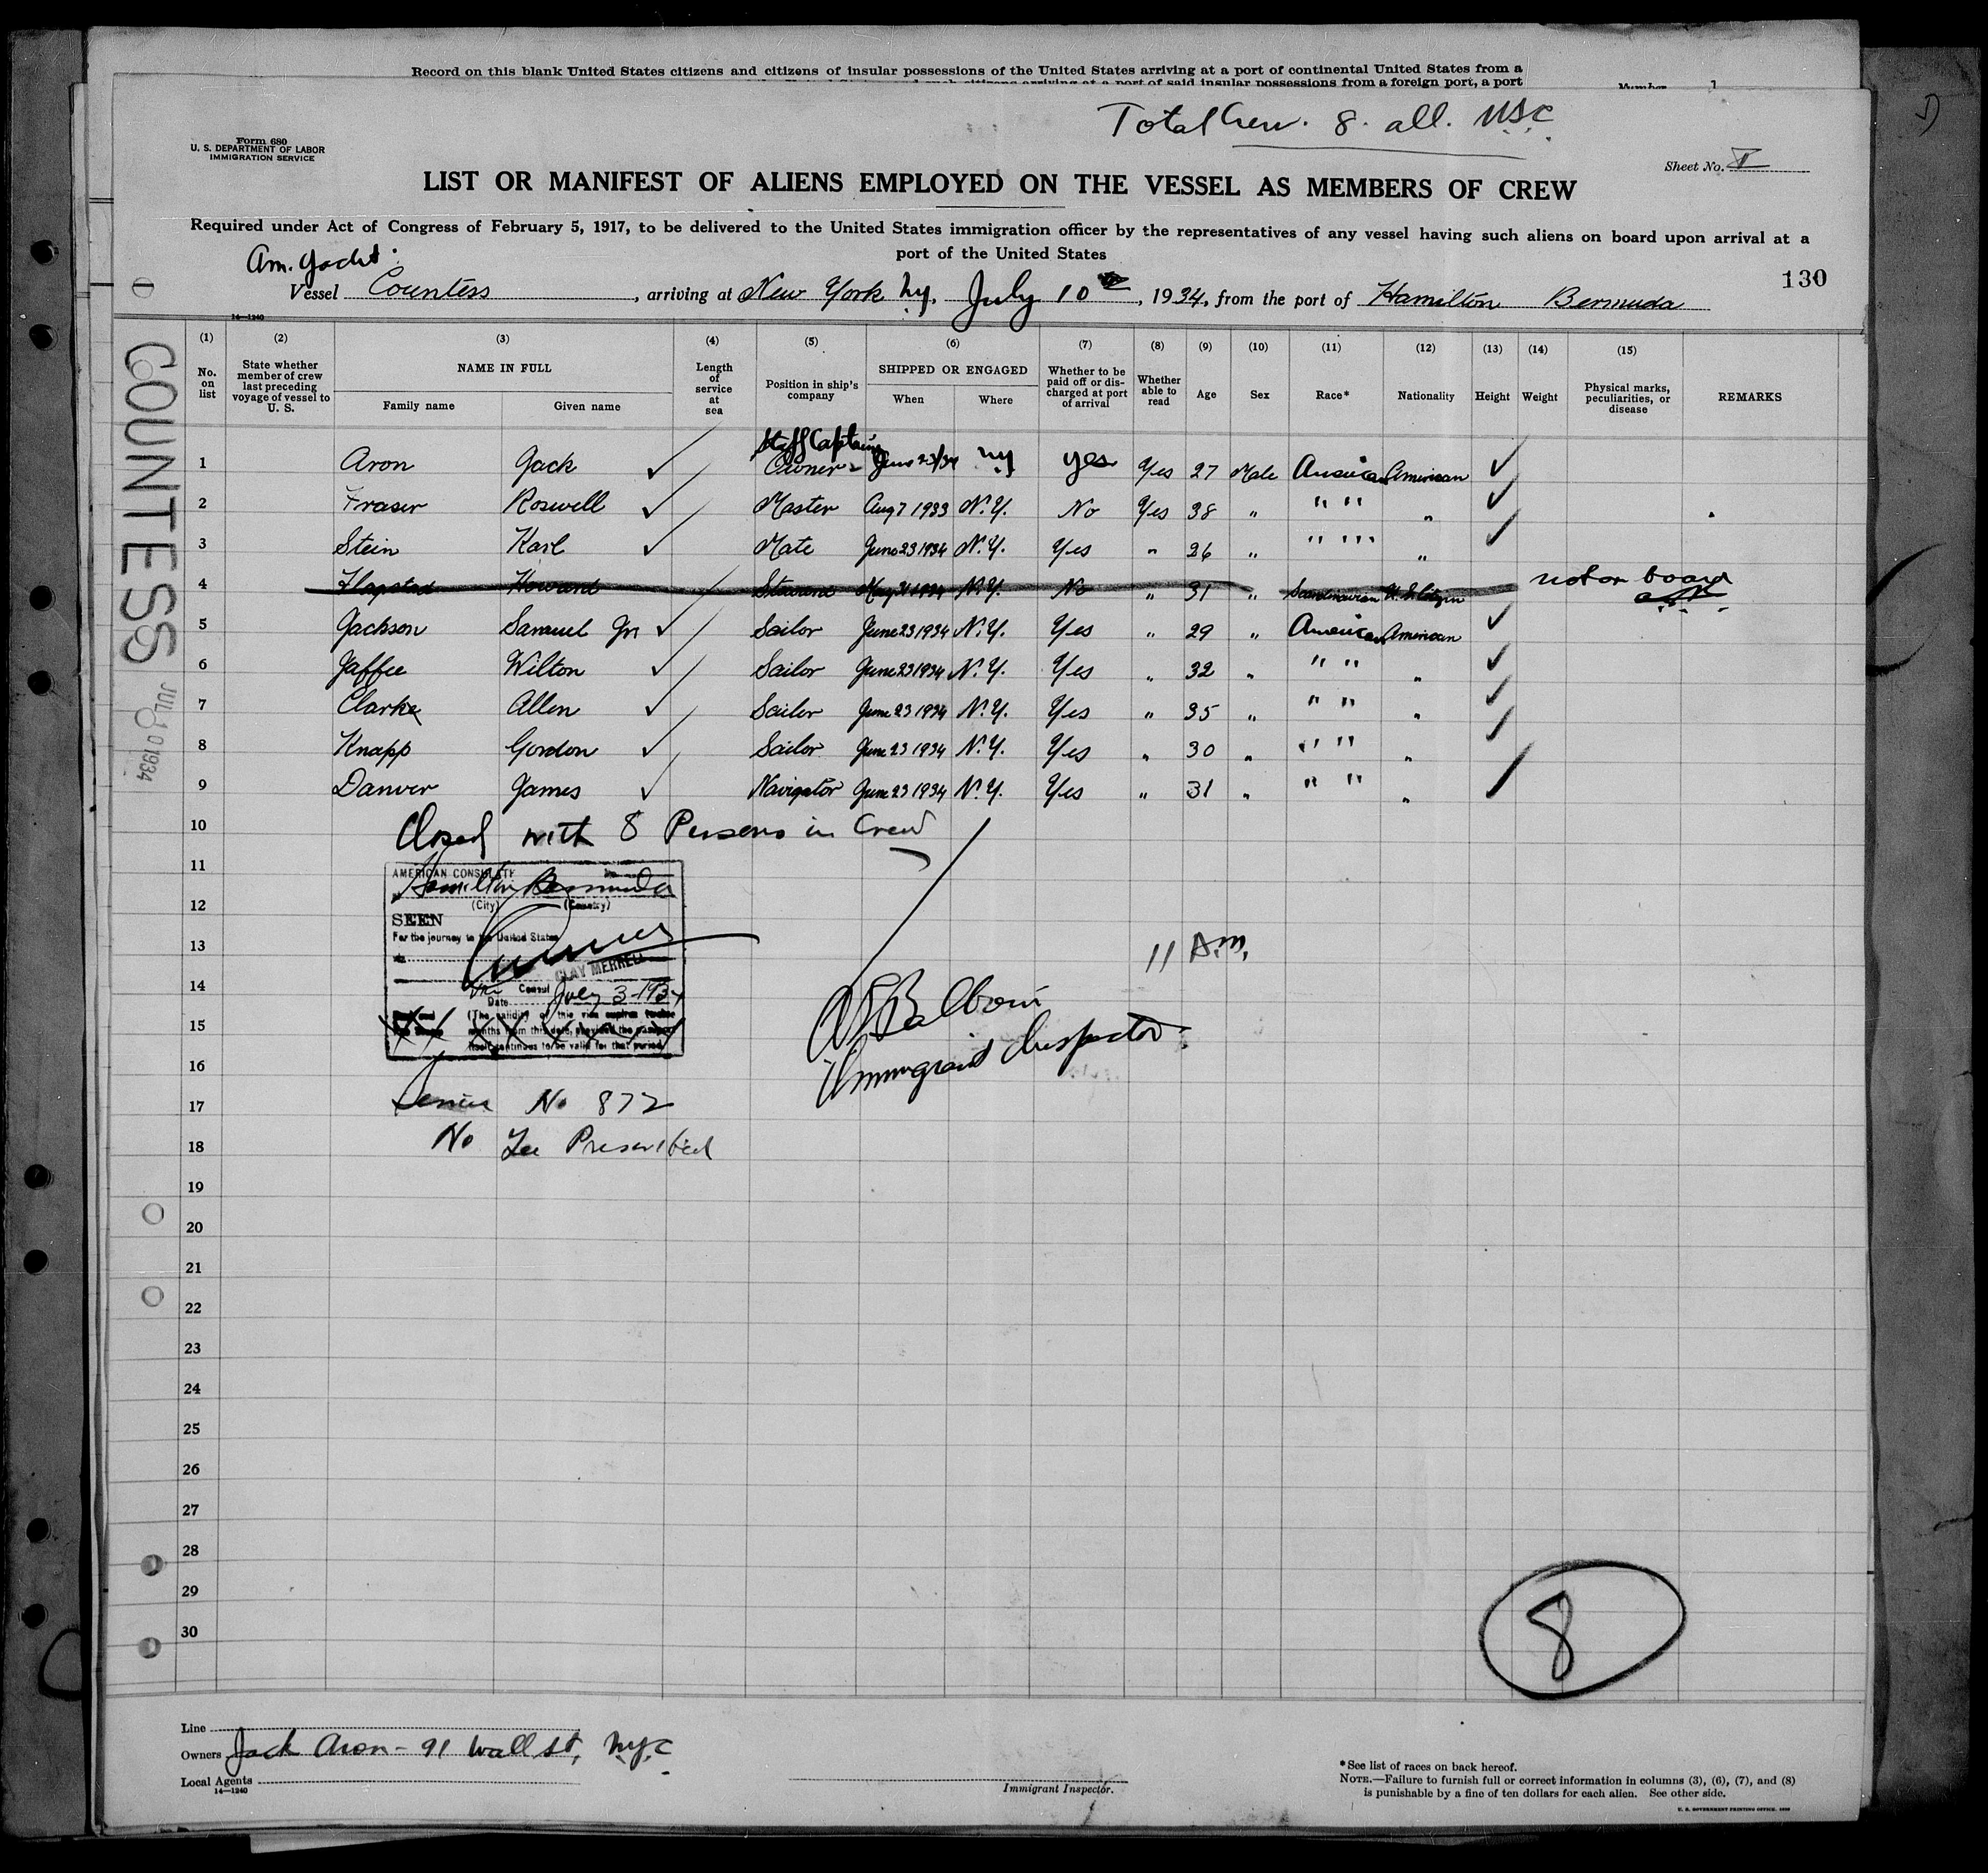 Record on this blank United States citizens and citizens of insular possessions of the United States arriving at a port of continental United States from a
Number 1
Total Crew. 8. all. USC
Form 680
U. S. DEPARTMENT OF LABOR
IMMIGRATION SERVICE
Sheet No. I
LIST OR MANIFEST OF ALIENS EMPLOYED ON THE VESSEL AS MEMBERS OF CREW
Required under Act of Congress of February 5, 1917, to be delivered to the United States immigration officer by the representatives of any vessel having such aliens on board upon arrival at a
port of the United States
Am. Yacht
130
Vessel Countess, arriving at New York N.Y. July 10, 1934, from the port of Hamilton Bermuda
14—1240
(1) (2) (3) (4) (5) (6) (7) (8) (9) (10) (11) (12) (13) (14) (15)
No. on list
State whether member of crew last preceding voyage of vessel to U. S.
NAME IN FULL
Family name
Given name
Length of service at sea
Position in ship's company
SHIPPED OR ENGAGED
When
Where
Whether to be paid off or discharged at port of arrival
Whether able to read
Age
Sex
Race*
Nationality
Height
Weight
Physical marks, peculiarities, or disease
REMARKS
Staff Captain
1 Aron Jack Owner June 23/34 NY yes Yes 27 Male American American
2 Fraser Roswell Master Aug 7 1933 N.Y. No Yes 38 " " " "
3 Stein Karl Mate June 23 1934 N.Y. Yes " 26 " " " "
4 Flagstad Howard Steward May 21 1934 N.Y. No " 31 " Scandinavian U.S. Citizen not on board
5 Jackson Samuel Jr Sailor June 23 1934 N.Y. Yes " 29 " American American
6 Jaffee Wilton Sailor June 23 1934 N.Y. Yes " 32 " " " "
7 Clarke Allen Sailor June 23 1934 N.Y. Yes " 35 " " " "
8 Knapp Gordon Sailor June 23 1934 N.Y. Yes " 30 " " " "
9 Danver James Navigator June 23 1934 N.Y. Yes " 31 " " " "
10 Closed with 8 Persons in Crew
11
AMERICAN CONSULATE
Hamilton Bermuda
12
(City) (Country)
SEEN
For the journey to the United States
13
11 A.M.
CLAY MERRELL
14
Vice Consul
Date July 3-1934
15
(The validity of this visa expires twelve
months from this date, provided the passport
itself continues to be valid for that period)
Immigrant Inspector.
16
17 Service No 872
18 No Fee Prescribed
19
20
21
22
23
24
25
26
27
28
29
30
8
COUNTESS
JUL 10 1934
Line
Owners Jack Aron - 91 Wall St, NYC
Local Agents
14—1240
Immigrant Inspector.
*See list of races on back hereof.
NOTE.—Failure to furnish full or correct information in columns (3), (6), (7), and (8)
is punishable by a fine of ten dollars for each alien. See other side.